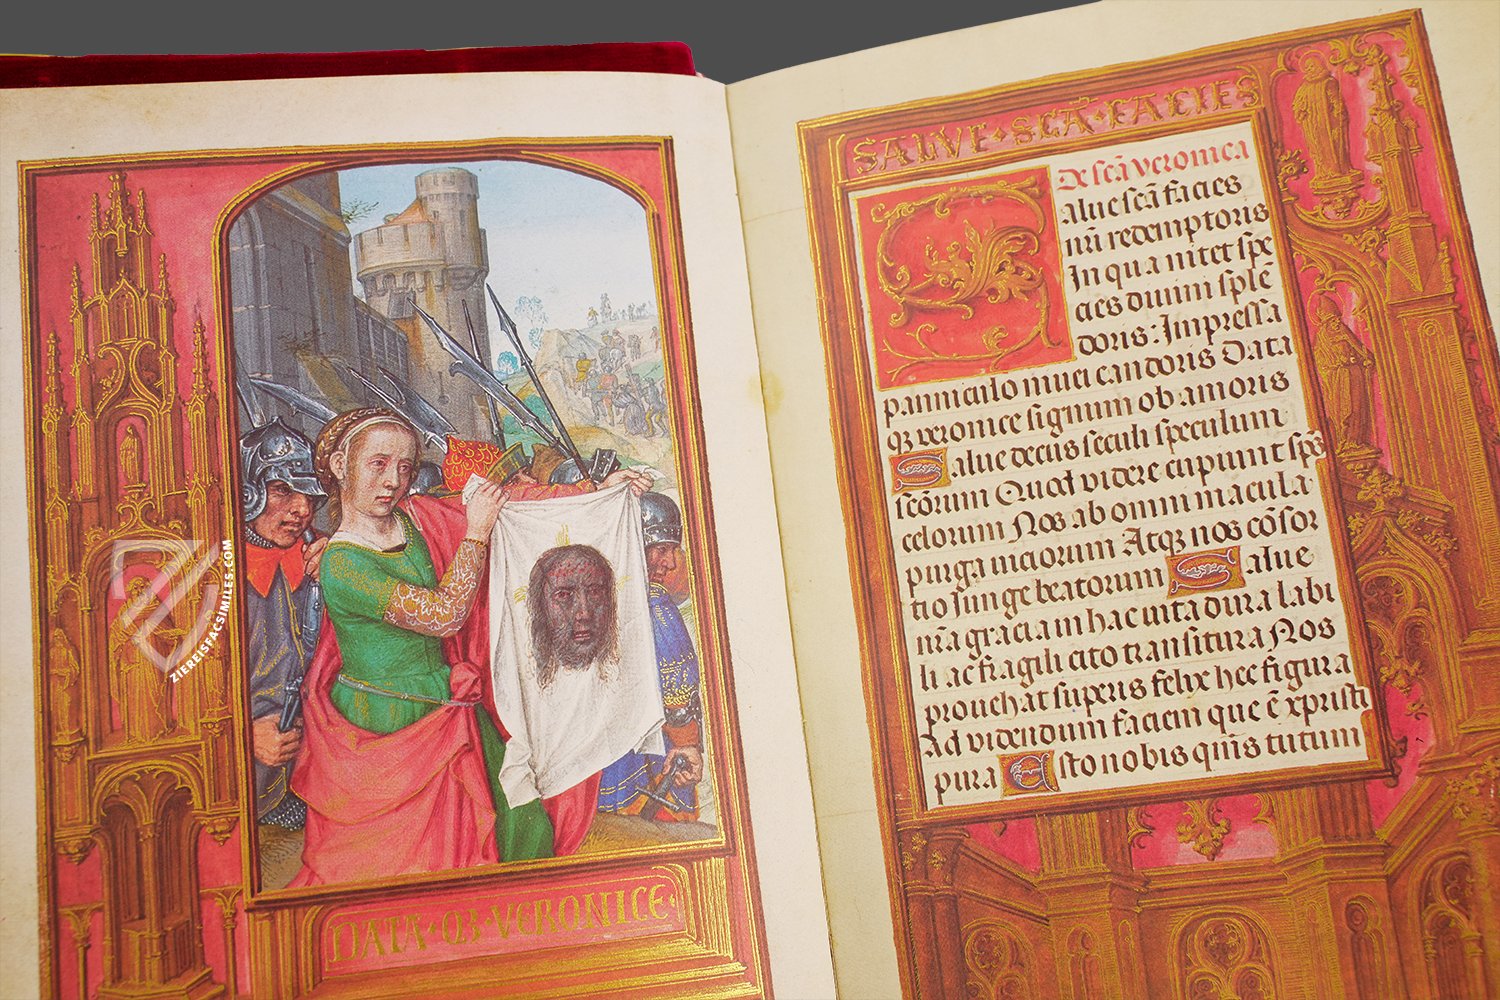 DATA · Qꝫ · VERONICE
ZIEREISFACSIMILES.COM
SALVE · SCĀ · FACIES
De scā veronica
Salue scā facies
nrī redemptoris
In qua nitet spe
cies diuini splē
doris: Impressa
panniculo niuei candoris Data
qꝫ veronice signum ob amoris
Salue decus seculi speculum
scōrum Quod videre cupiunt spūs
celorum Nos ab omni macula
purga viciorum Atqꝫ nos cōsor
tio Junge beatorum Salue
nrā gracia in hac uita dura Labi
li ac fragili cito transitura Nos
prouehat superis felix hec figura
Ad videndum faciem que ē xpristi
pura Esto nobis quīs tutum